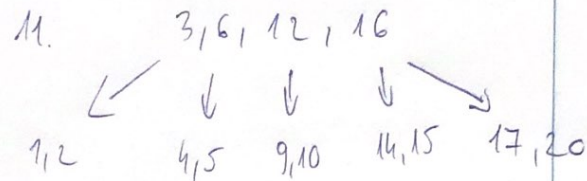 11. 3, 6, 12, 16
1,2 4,5 9,10 14,15 17,20